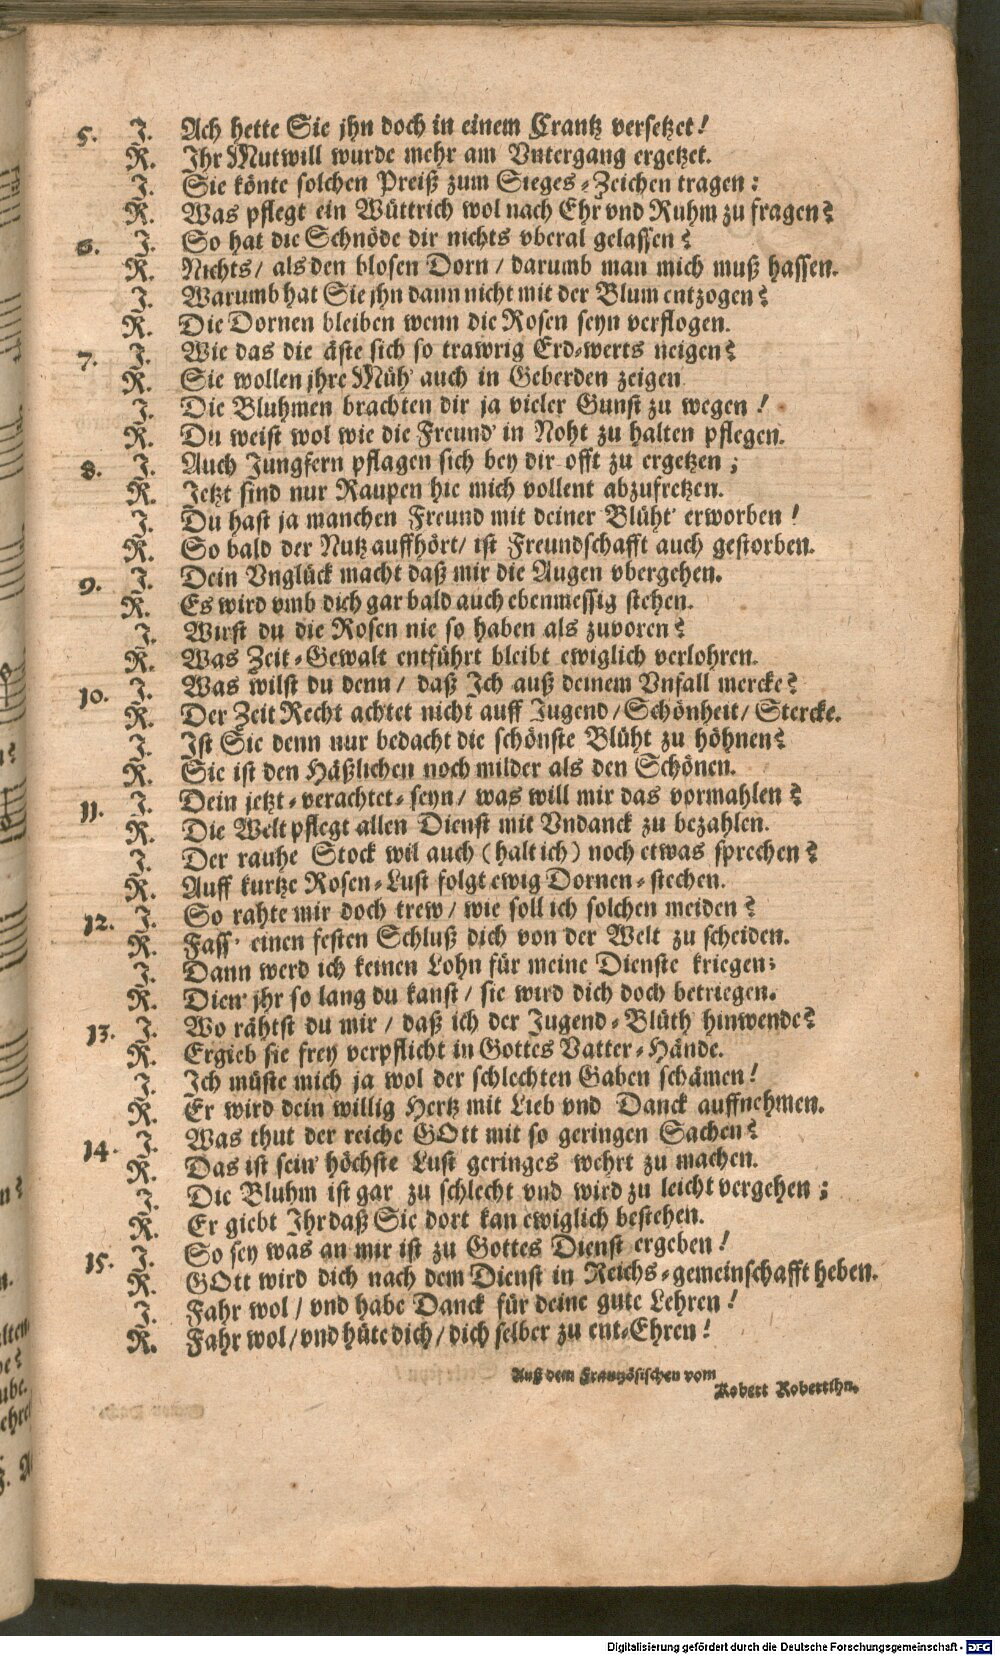 5. J. Ach hette Sie jhn doch in einem Crantz versetzet!
R. Ihr Mutwill wurde mehr am Vntergang ergetzet.
J. Sie könte solchen Preiß zum Sieges-Zeichen tragen:
R. Was pflegt ein Wüttrich wol nach Ehr vnd Ruhm zu fragen?
6. J. So hat die Schnöde dir nichts vberal gelassen?
R. Nichts/ als den blosen Dorn/ darumb man mich muß hassen.
J. Warumb hat Sie jhn dann nicht mit der Blum entzogen?
R. Die Dornen bleiben wenn die Rosen seyn verflogen.
7. J. Wie das die äste sich so trawrig Erd-werts neigen?
R. Sie wollen jhre Müh' auch in Geberden zeigen
J. Die Bluhmen brachten dir ja vieler Gunst zu wegen!
R. Du weist wol wie die Freund' in Noht zu halten pflegen.
8. J. Auch Jungfern pflagen sich bey dir offt zu ergetzen;
R. Jetzt sind nur Raupen hie mich vollent abzufretzen.
J. Du hast ja manchen Freund mit deiner Blüht' erworben!
R. So bald der Nutz auffhört/ ist Freundschafft auch gestorben.
9. J. Dein Vnglück macht daß mir die Augen vbergehen.
R. Es wird vmb dich gar bald auch ebenmessig stehen.
J. Wirst du die Rosen nie so haben als zuvoren?
R. Was Zeit-Gewalt entführt bleibt ewiglich verlohren.
10. J. Was wilst du denn/ daß Ich auß deinem Vnfall mercke?
R. Der Zeit Recht achtet nicht auff Jugend/ Schönheit/ Stercke.
J. Ist Sie denn nur bedacht die schönste Blüht zu höhnen?
R. Sie ist den Häßlichen noch milder als den Schönen.
11. J. Dein jetzt-verachtet-seyn/ was will mir das vormahlen?
R. Die Welt pflegt allen Dienst mit Vndanck zu bezahlen.
J. Der rauhe Stock wil auch (halt ich) noch etwas sprechen?
R. Auff kurtze Rosen-Lust folgt ewig Dornen-stechen.
12. J. So rahte mir doch trew/ wie soll ich solchen meiden?
R. Fass' einen festen Schluß dich von der Welt zu scheiden.
J. Dann werd ich keinen Lohn für meine Dienste kriegen;
R. Dien' jhr so lang du kanst/ sie wird dich doch betriegen.
13. J. Wo rähtst du mir/ daß ich der Jugend-Blüth hinwende?
R. Ergieb sie frey verpflicht in Gottes Vatter-Hände.
J. Ich müste mich ja wol der schlechten Gaben schämen!
R. Er wird dein willig Hertz mit Lieb vnd Danck auffnehmen.
14. J. Was thut der reiche GOtt mit so geringen Sachen?
R. Das ist sein' höchste Lust geringes wehrt zu machen.
J. Die Bluhm ist gar zu schlecht vnd wird zu leicht vergehen;
R. Er giebt Ihr daß Sie dort kan ewiglich bestehen.
15. J. So sey was an mir ist zu Gottes Dienst ergeben!
R. GOtt wird dich nach dem Dienst in Reichs-gemeinschafft heben.
J. Fahr wol/ vnd habe Danck für deine gute Lehren!
R. Fahr wol/ vnd hüte dich/ dich selber zu ent-Ehren!
Auß dem Frantzösischen vom
Robert Roberthn.
Digitalisierung gefördert durch die Deutsche Forschungsgemeinschaft - DFG